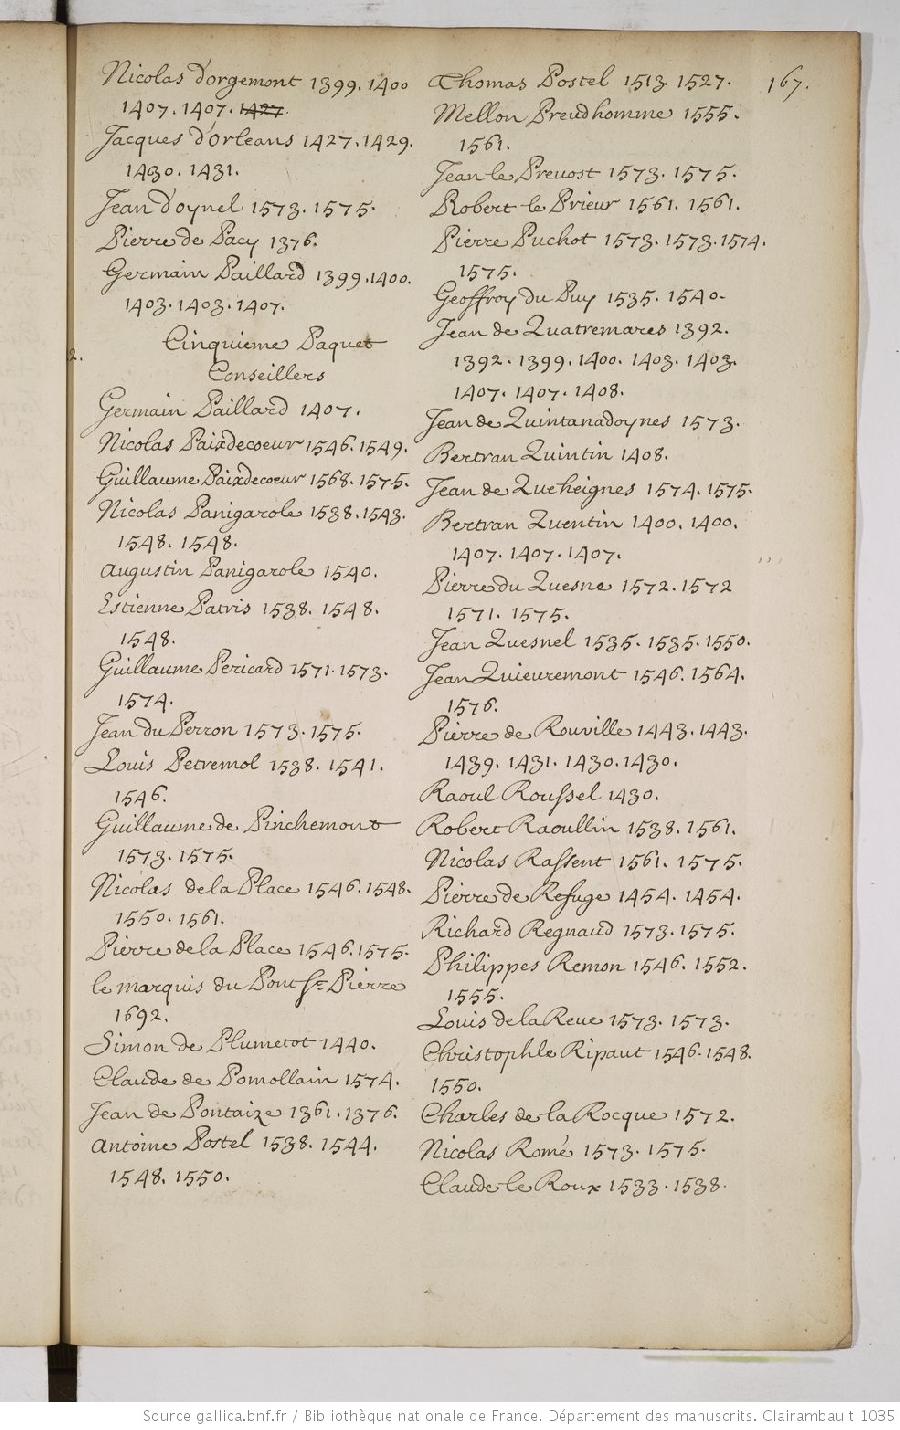 Nicolas d'orgemont 1399. 1400
1407. 1407. 1427.
Jacques d'orleans 1427. 1429.
1430. 1431.
Jean d'oynel 1573. 1575.
Pierre de Pacy 1376.
Germain Paillard 1399. 1400.
1403. 1403. 1407.
Cinquieme Paquet
Conseillers
Germain Paillard 1407.
Nicolas Paixdecoeur 1546. 1549.
Guillaume Paixdecoeur 1568. 1575.
Nicolas Panigarole 1538. 1543.
1548. 1548.
Augustin Panigarole 1540.
Estienne Patris 1538. 1548.
1548.
Guillaume Pericard 1571. 1573.
1574.
Jean du Perron 1573. 1575.
Louis Petremol 1538. 1541.
1546.
Guillaume de Pinchemont
1573. 1575.
Nicolas de la Place 1546. 1548.
1550. 1561.
Pierre de la Place 1546. 1575.
le marquis du Pont St Pierre
1692.
Simon de Plumetot 1440.
Claude de Pomollain 1574.
Jean de Pontaize 1361. 1376.
Antoine Postel 1538. 1544.
1548. 1550.
Thomas Postel 1513 1527.
Mellon Preudhomme 1555.
1561.
Jean le Prevost 1573. 1575.
Robert le Prieur 1561. 1561.
Pierre Puchot 1573. 1573. 1574.
1575.
Geoffroy du Puy 1535. 1540.
Jean de Quatremares 1392.
1392. 1399. 1400. 1403. 1403.
1407. 1407. 1408.
Jean de Quintanadoynes 1573.
Bertran Quintin 1408.
Jean de Queheignes 1574. 1575.
Bertran Quentin 1400. 1400.
1407. 1407. 1407.
Pierre du Quesne 1572. 1572
1571. 1575.
Jean Quesnel 1535. 1535. 1550.
Jean Quieuremont 1546. 1564.
1576.
Pierre de Rouville 1443. 1443.
1439. 1431. 1430. 1430.
Raoul Roussel 1430.
Robert Raoullin 1538. 1561.
Nicolas Rassent 1561. 1575.
Pierre de Refuge 1454. 1454.
Richard Regnaud 1573. 1575.
Philippes Remon 1546. 1552.
1555.
Louis de la Reue 1573. 1573.
Christophle Ripaut 1546. 1548.
1550.
Charles de la Rocque 1572.
Nicolas Romé 1573. 1575.
Claude le Roux 1533. 1538.
167.
Source gallica.bnf.fr / Bibliothèque nationale de France. Département des manuscrits. Clairambault 1035